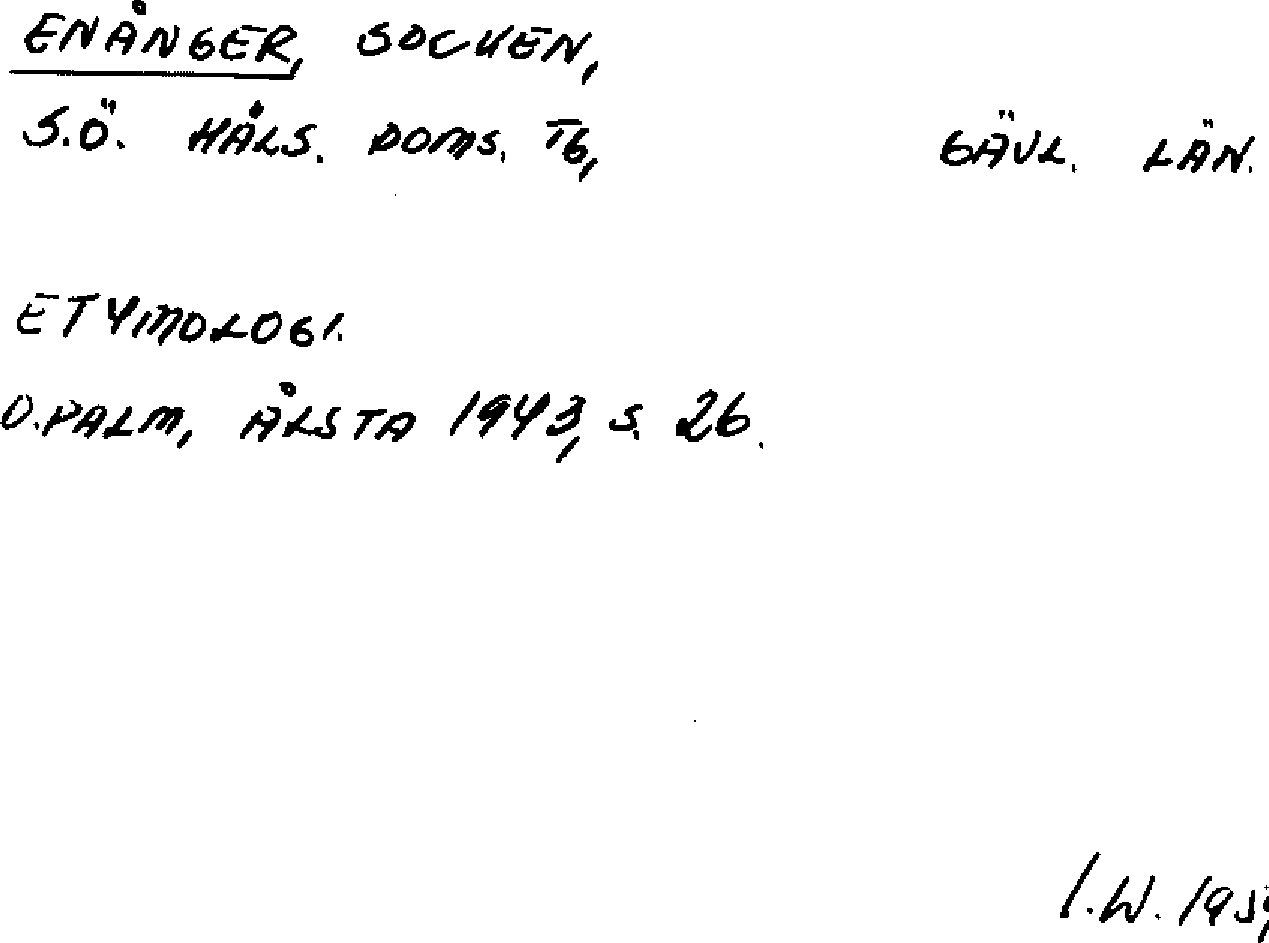 ENÅNGER, SOCKEN,
S.Ö. HÄLS. DOMS. TG, GÄVL. LÄN.
ETYMOLOGI.
D.PALM, ÅLSTA 1943, S. 26.
I.W.